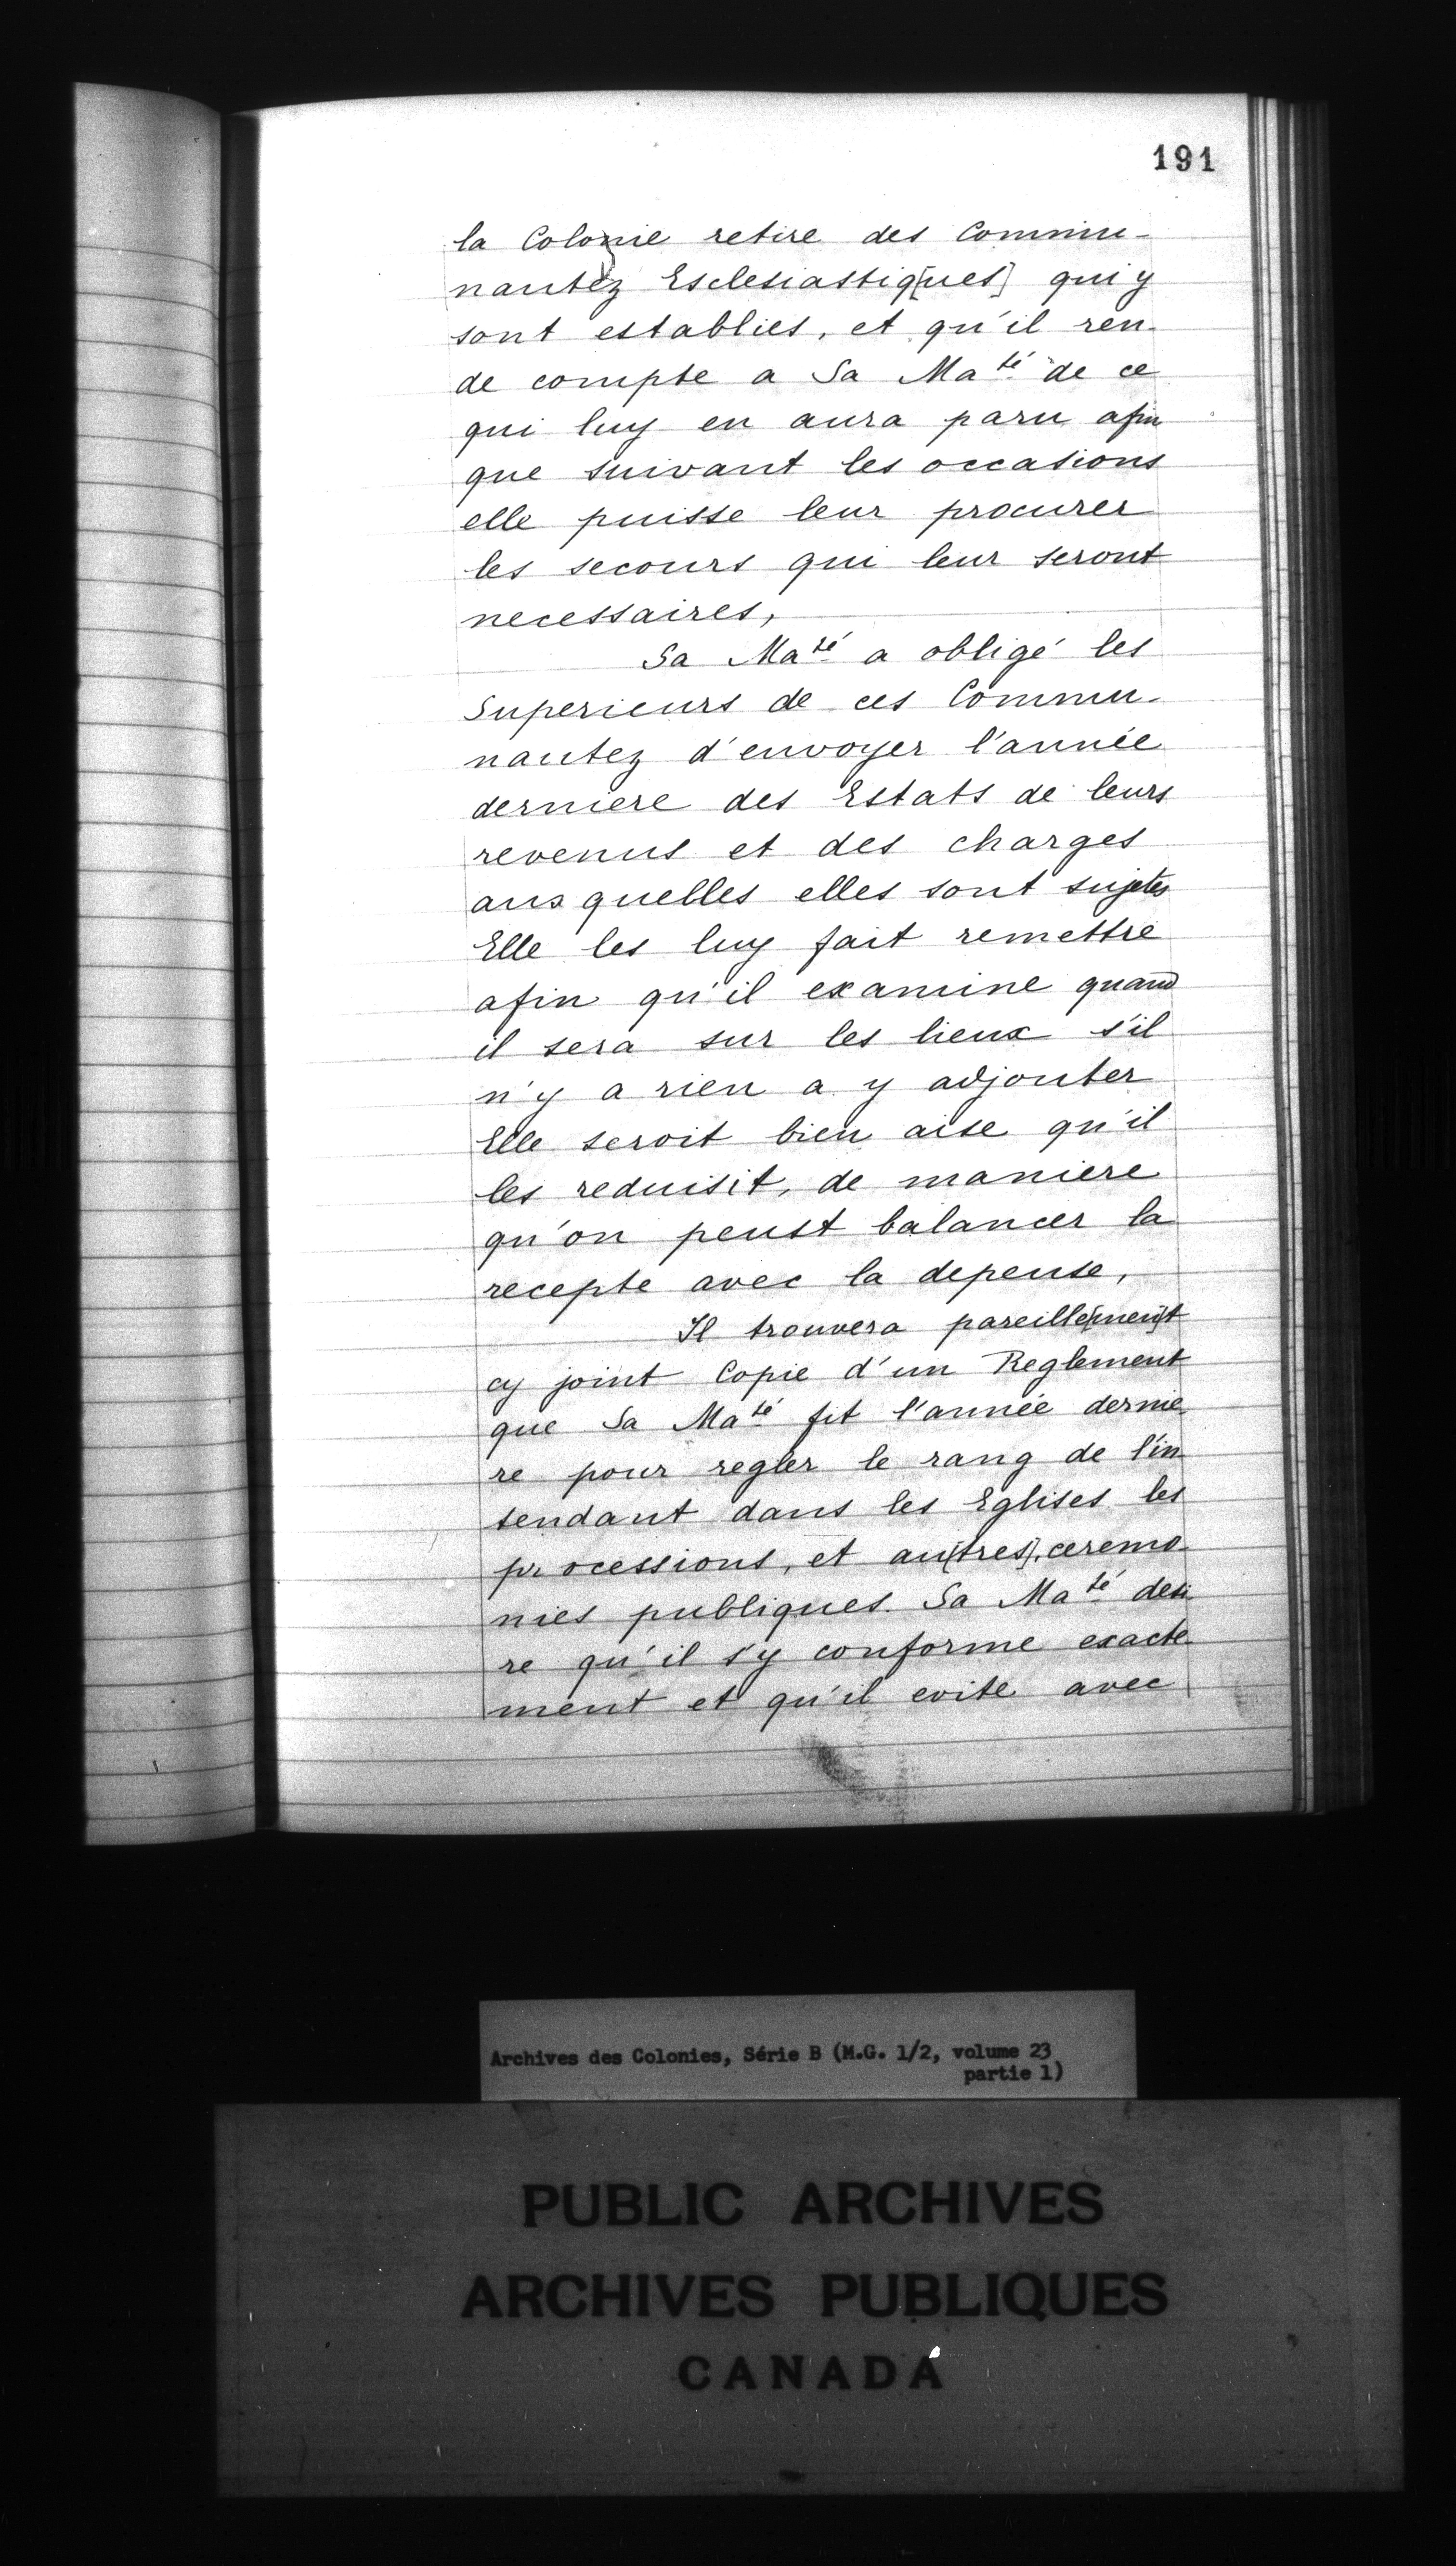 191
la Colonie retire des Commu-
nautez Esclesiastiq[ues] qui y
sont establies, et qu'il ren-
de compte a Sa Ma^té de ce
qui luy en aura paru afin
que suivant les occasions
elle puisse leur procurer
les secours qui leur seront
necessaires,
Sa Ma^té a obligé les
Superieurs de ces Commu-
nautez d'envoyer l'année
derniere des Estats de leurs
revenus et des charges
ausquelles elles sont sujetes
Elle les luy fait remettre
afin qu'il examine quand
il sera sur les lieux s'il
n'y a rien a y adjouter
Elle seroit bien aise qu'il
les reduisit, de maniere
qu'on peust balancer la
recepte avec la depense,
Il trouvera pareille[men]t
cy joint Copie d'un Reglement
que Sa Ma^té fit l'année dernie-
re pour regler le rang de l'in-
tendant dans les Eglises les
processions, et au[tres], ceremo-
nies publiques. Sa Ma^té desi-
re qu'il s'y conforme exacte-
ment et qu'il evite avec
Archives des Colonies, Série B (M.G. 1/2, volume 23
partie 1)
PUBLIC ARCHIVES
ARCHIVES PUBLIQUES
CANADA